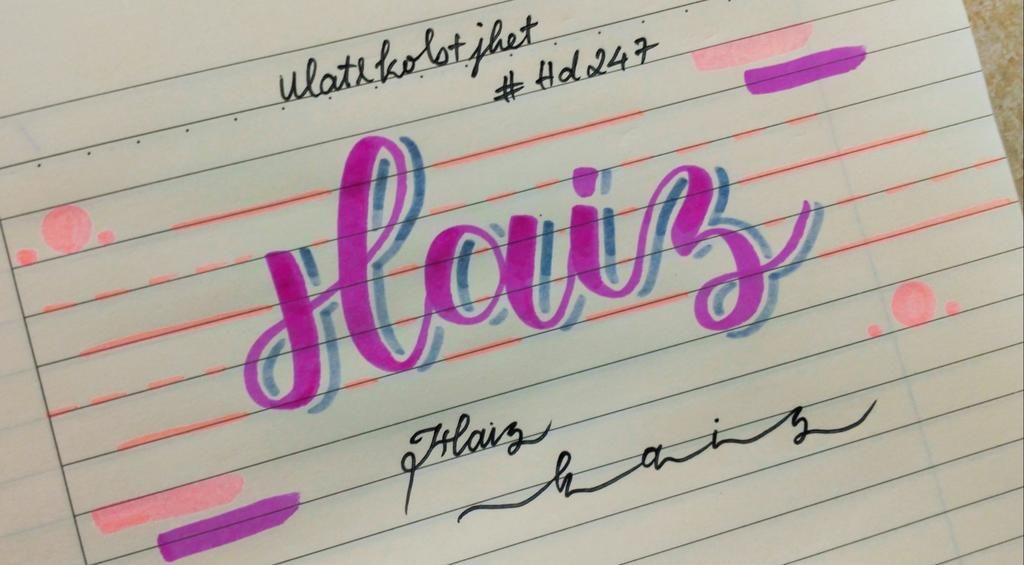 # Hd247
Haiz
Haiz
haiz